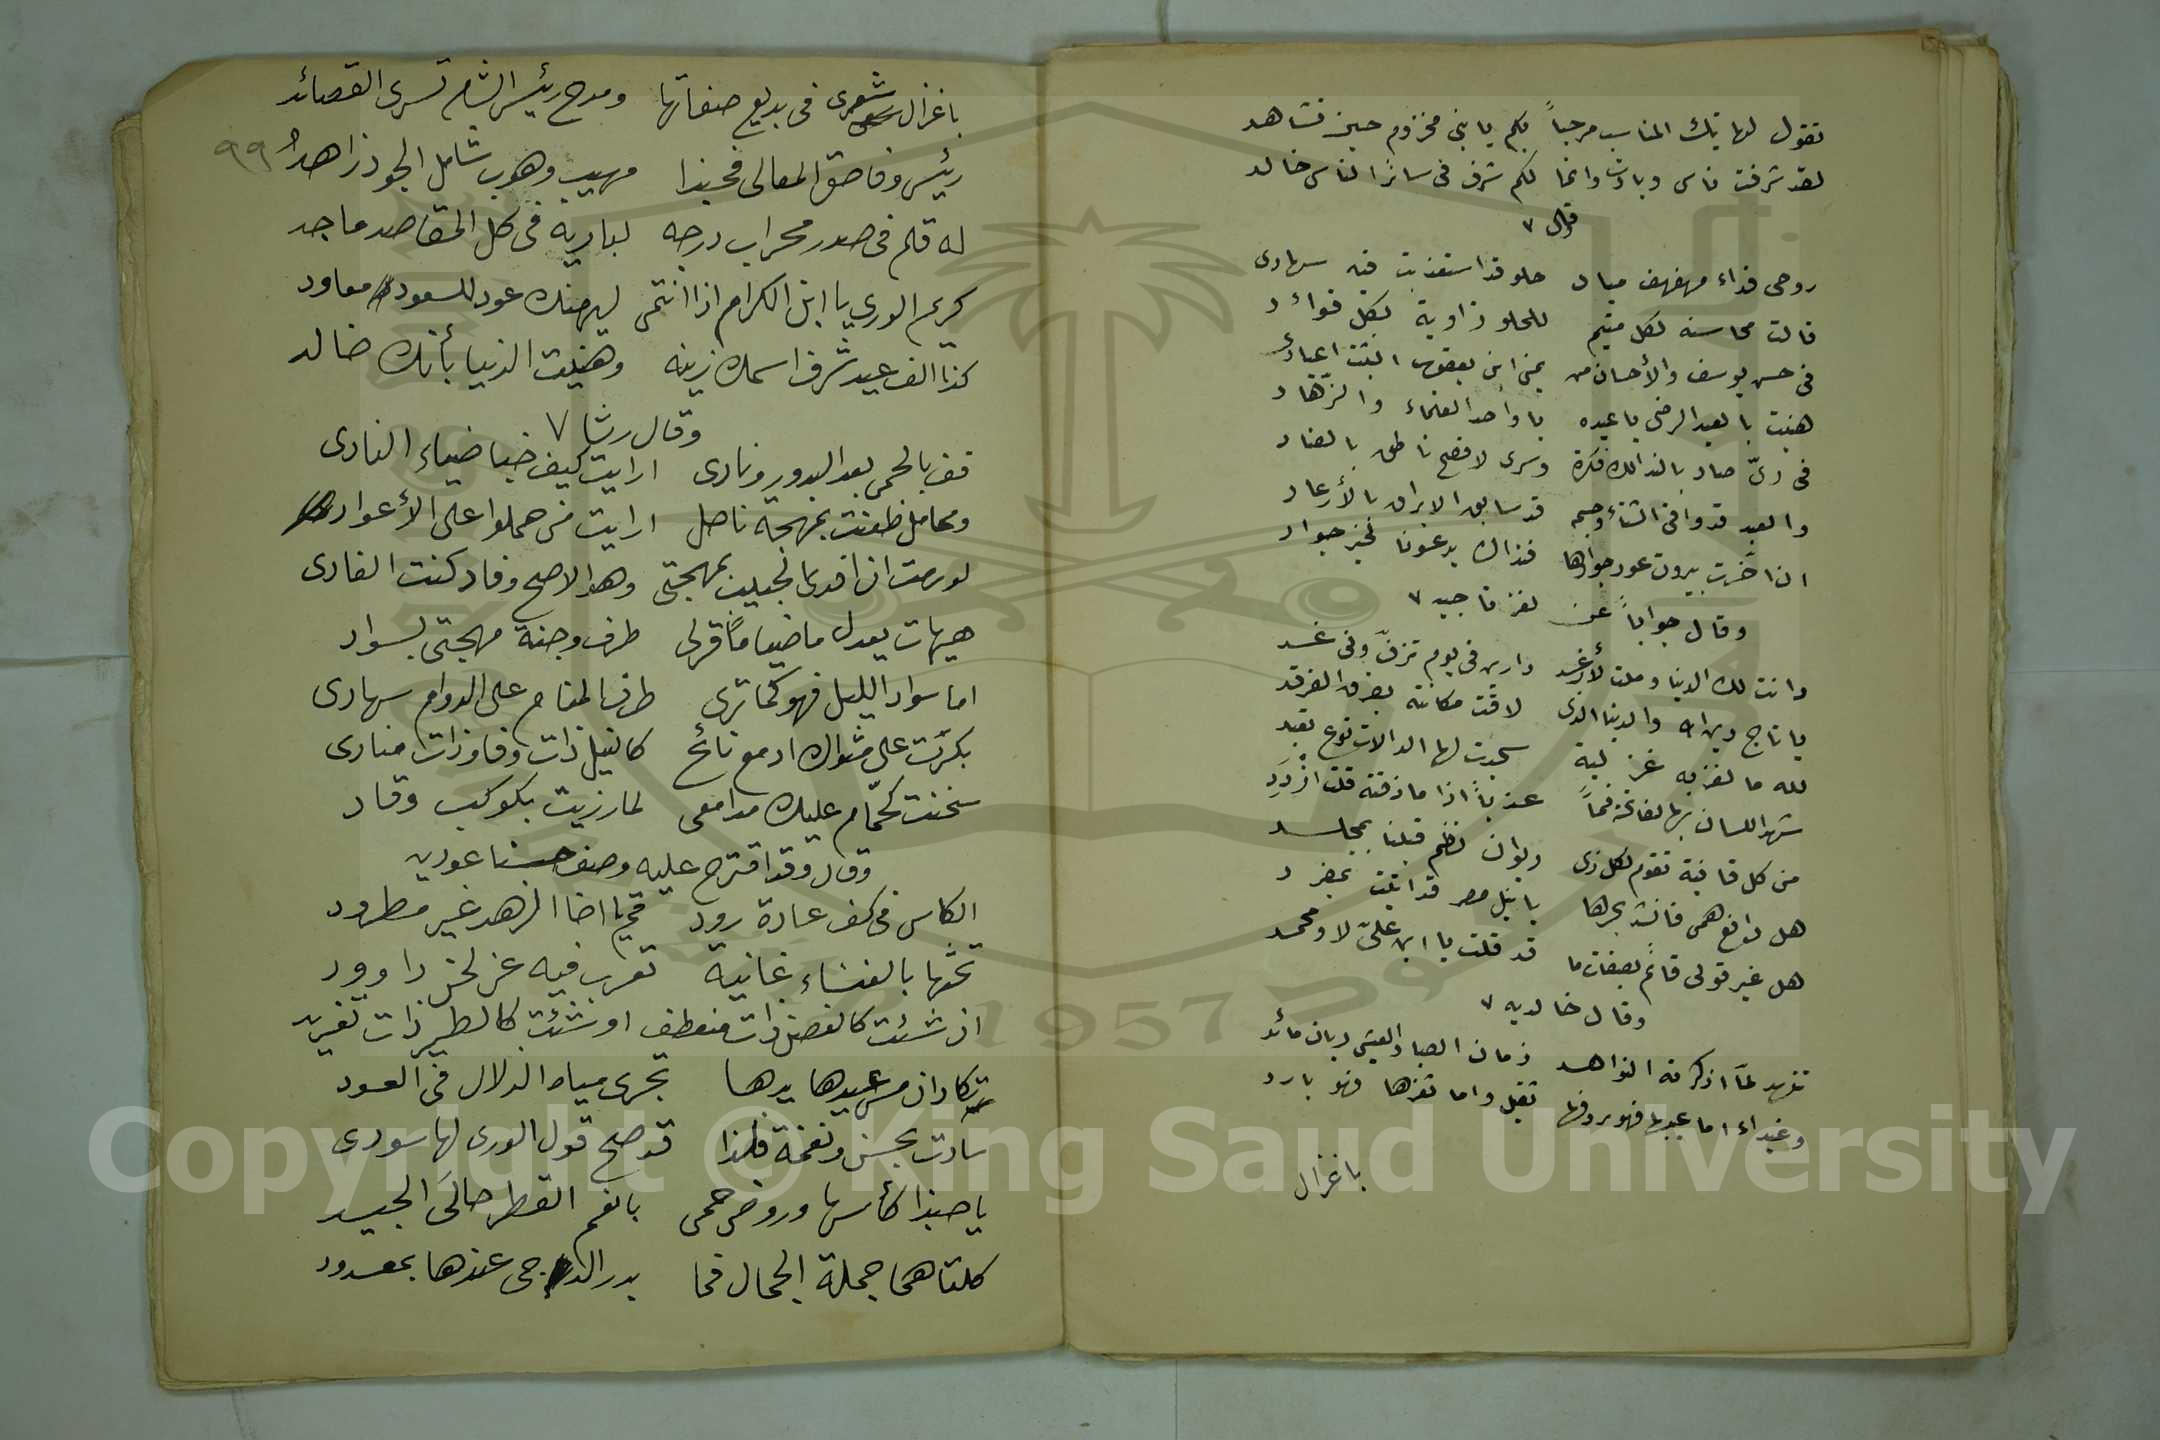 تقول لهاتيك المناسب مرحباً بكم يا بني مخزوم حين نشاهد
لقد شرفت ناس وبادت وانما لكم شرف في سائر الناس خالد
وقال ٧
روحي فداء مهفهف مياد حلو قد استعذبت فيه سهادي
قالت محاسنه لكل متيم للحلو زاوية بكل فوائد
في حسن يوسف والأحسان من يمنى ابن يعقوب انثنت اعيادي
هنيت بالعيد الرضى يا عيده يا واحد العلماء والزهاد
في ديّ صاد بالندا لك فكرة وسرى لافصح ناطق بالضاد
والعيد قد وافى الشتاء وجسم قد سابق الابراق بالأرعاد
ان اخّرت بيروت عود جوادها فنداك يدعونا لخير جواد
وقال جواباً عن لغز فاجيد ٧
دانت لك الدنيا وملت لأرغد دارين في يوم تزفّ وفي غد
يا تاج دين الله والدنيا الذي لاقت مكانته بفرق الفرقد
لله ما لغز به عن لية سجدت لها الدالات نوع تعبد
شهد اللسان بها لفاتحة فماً عذباً اذا ما ذقته قلت ازدد
من كل قافية تقوم لكل ذي ديوان نظم قبلنا بمجلد
هل نافع همى فانشد بحرها يا نيل مصر قد اتيت بمفرد
هل غير قولى قائم بصفات ما قد قلت يا ابن عليّ لا ومحمد
وقال خالديه ٧
تنهد لمّا اذكرته النواهد زمان الصبا والعيش ريان مائد
وغيداء اما عيبها فهو ردفها ثقيل واما ثغرها فهو بارد
باغزال
٩٩
باغزال شعري في بديع صفاتها ومدح رئيس الشام تسري القصائد
رئيس وفا حق المعالي فحبذا مهيب وهوب شامل الجود زاهد
له قلم في صدر محراب درجه لباريه في كل المقاصد ماجد
كريم الورى يا ابن الكرام اذا انتمى ليهنك عود للسعود معاود
كذا الف عيد شرف اسمك زينه وهنيت الدنيا بأنك خالد
وقال رثا ٧
قف بالحمى بعد البدور ونادى ارايت كيف خبا ضياء النادى
ومحامل ظعنت بمهجة ناحل ارايت من حملوا على الأعواد
لو رمت ان افدي الحبيب بمهجتي وهو الاصح وفاد كنت الفادى
هيهات يعدل ما ضياماً قرلى طرف وجنة مهجتى بسواد
اما سواد الليل فهو كما ترى طرف المقام على الدوام سهادى
بكرت على مثواك ادمع نائح كالنيل ذات وفا وذات منادى
سخنت كحمّام عليك مدامعى لما رزيت بكوكب وقاد
وقال وقد اقترح عليه وصف حسنا عوديه
الكاس في كف غادة رود قم يا اخا الزهد غير مطرود
تحثها بالغناء غانية تعرب فيه عن لحن داوود
ان شئت كالغصن ذات منعطف او شئت كالطير ذات تغريد
تكاد ان مس عيدها يدها تجرى مياه الدلال في العود
سادت بحسن ونغمة فلذا قد صح قول الورى لها سودى
يا حبذا كأسها وروض حمى بالغم القطر حالى الجيد
كلتاهما جملة الجمال فما بدر الدجى عندها بمعدود